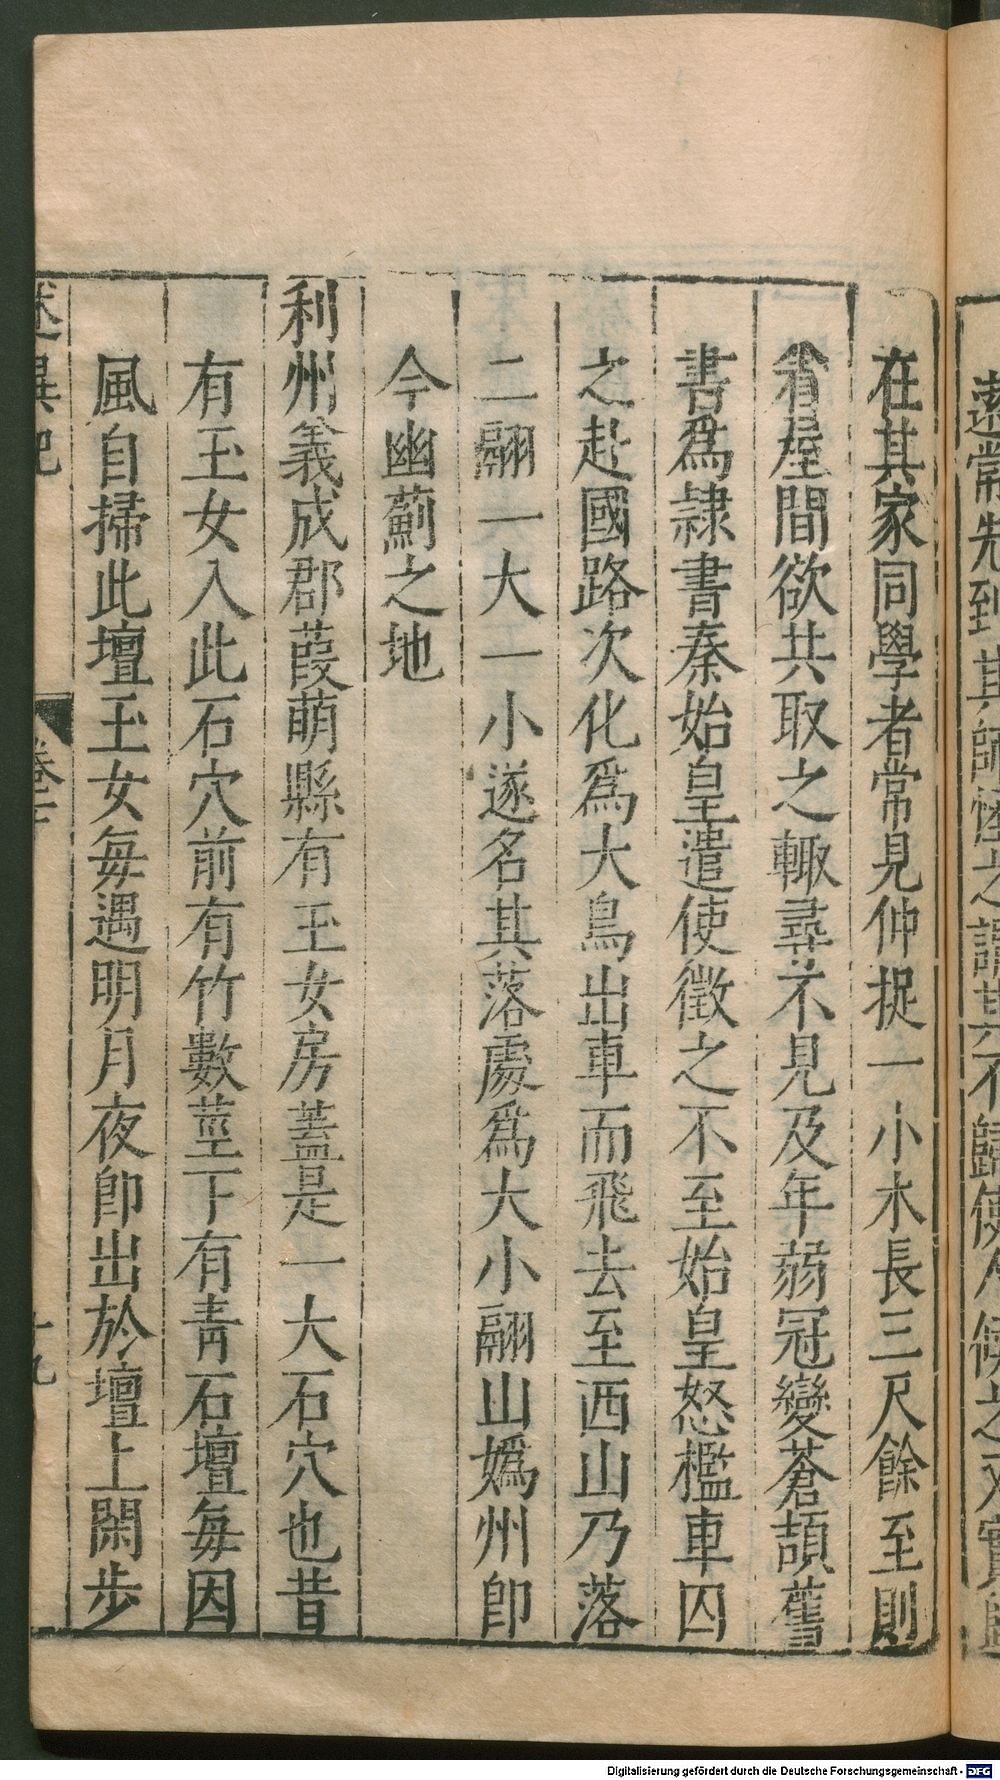 遼常先到其師怪之謂其不歸使人候之又實歸
在其家同學者常見仲捉一小木長三尺餘至則
着屋間欲共取之輙尋不見及年弱冠變蒼頡舊
書爲隷書秦始皇遣使徵之不至始皇怒檻車囚
之赴國路次化爲大鳥出車而飛去至西山乃落
二翮一大一小遂名其落處爲大小翮山嬀州卽
今幽薊之地
利州義成郡葭萌縣有玉女房蓋是一大石穴也昔
有玉女入此石穴前有竹數莖下有青石壇每因
風自掃此壇玉女每遇明月夜卽出於壇上閑步
述異記 卷下 十九
Digitalisierung gefördert durch die Deutsche Forschungsgemeinschaft - DFG